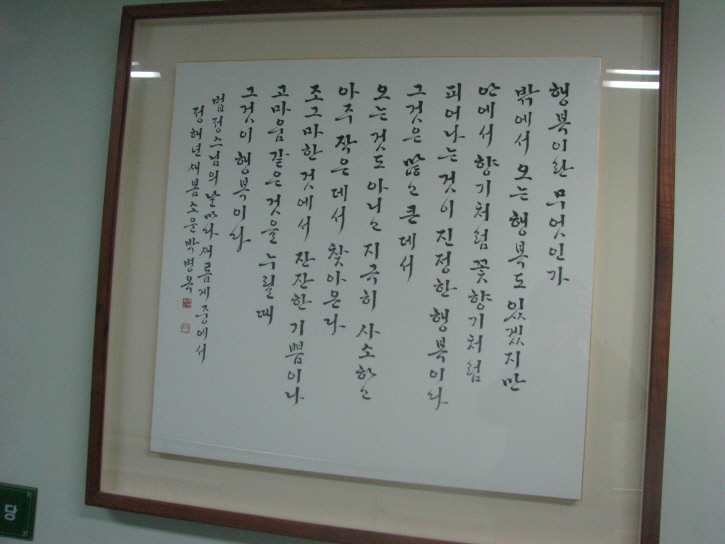 행복이란 무엇인가
밖에서 오는 행복도 있겠지만
안에서 향기처럼 꽃향기처럼
피어나는 것이 진정한 행복이라
그것은 많고 큰 데서
오는 것도 아니고 지극히 사소하고
아주 작은 데서 찾아온다
조그마한 것에서 잔잔한 기쁨이나
고마움 같은 것을 누릴 때
그것이 행복이라
법정스님의 날마다 새롭게 중에서
정해년 새봄 소운 박병옥
당